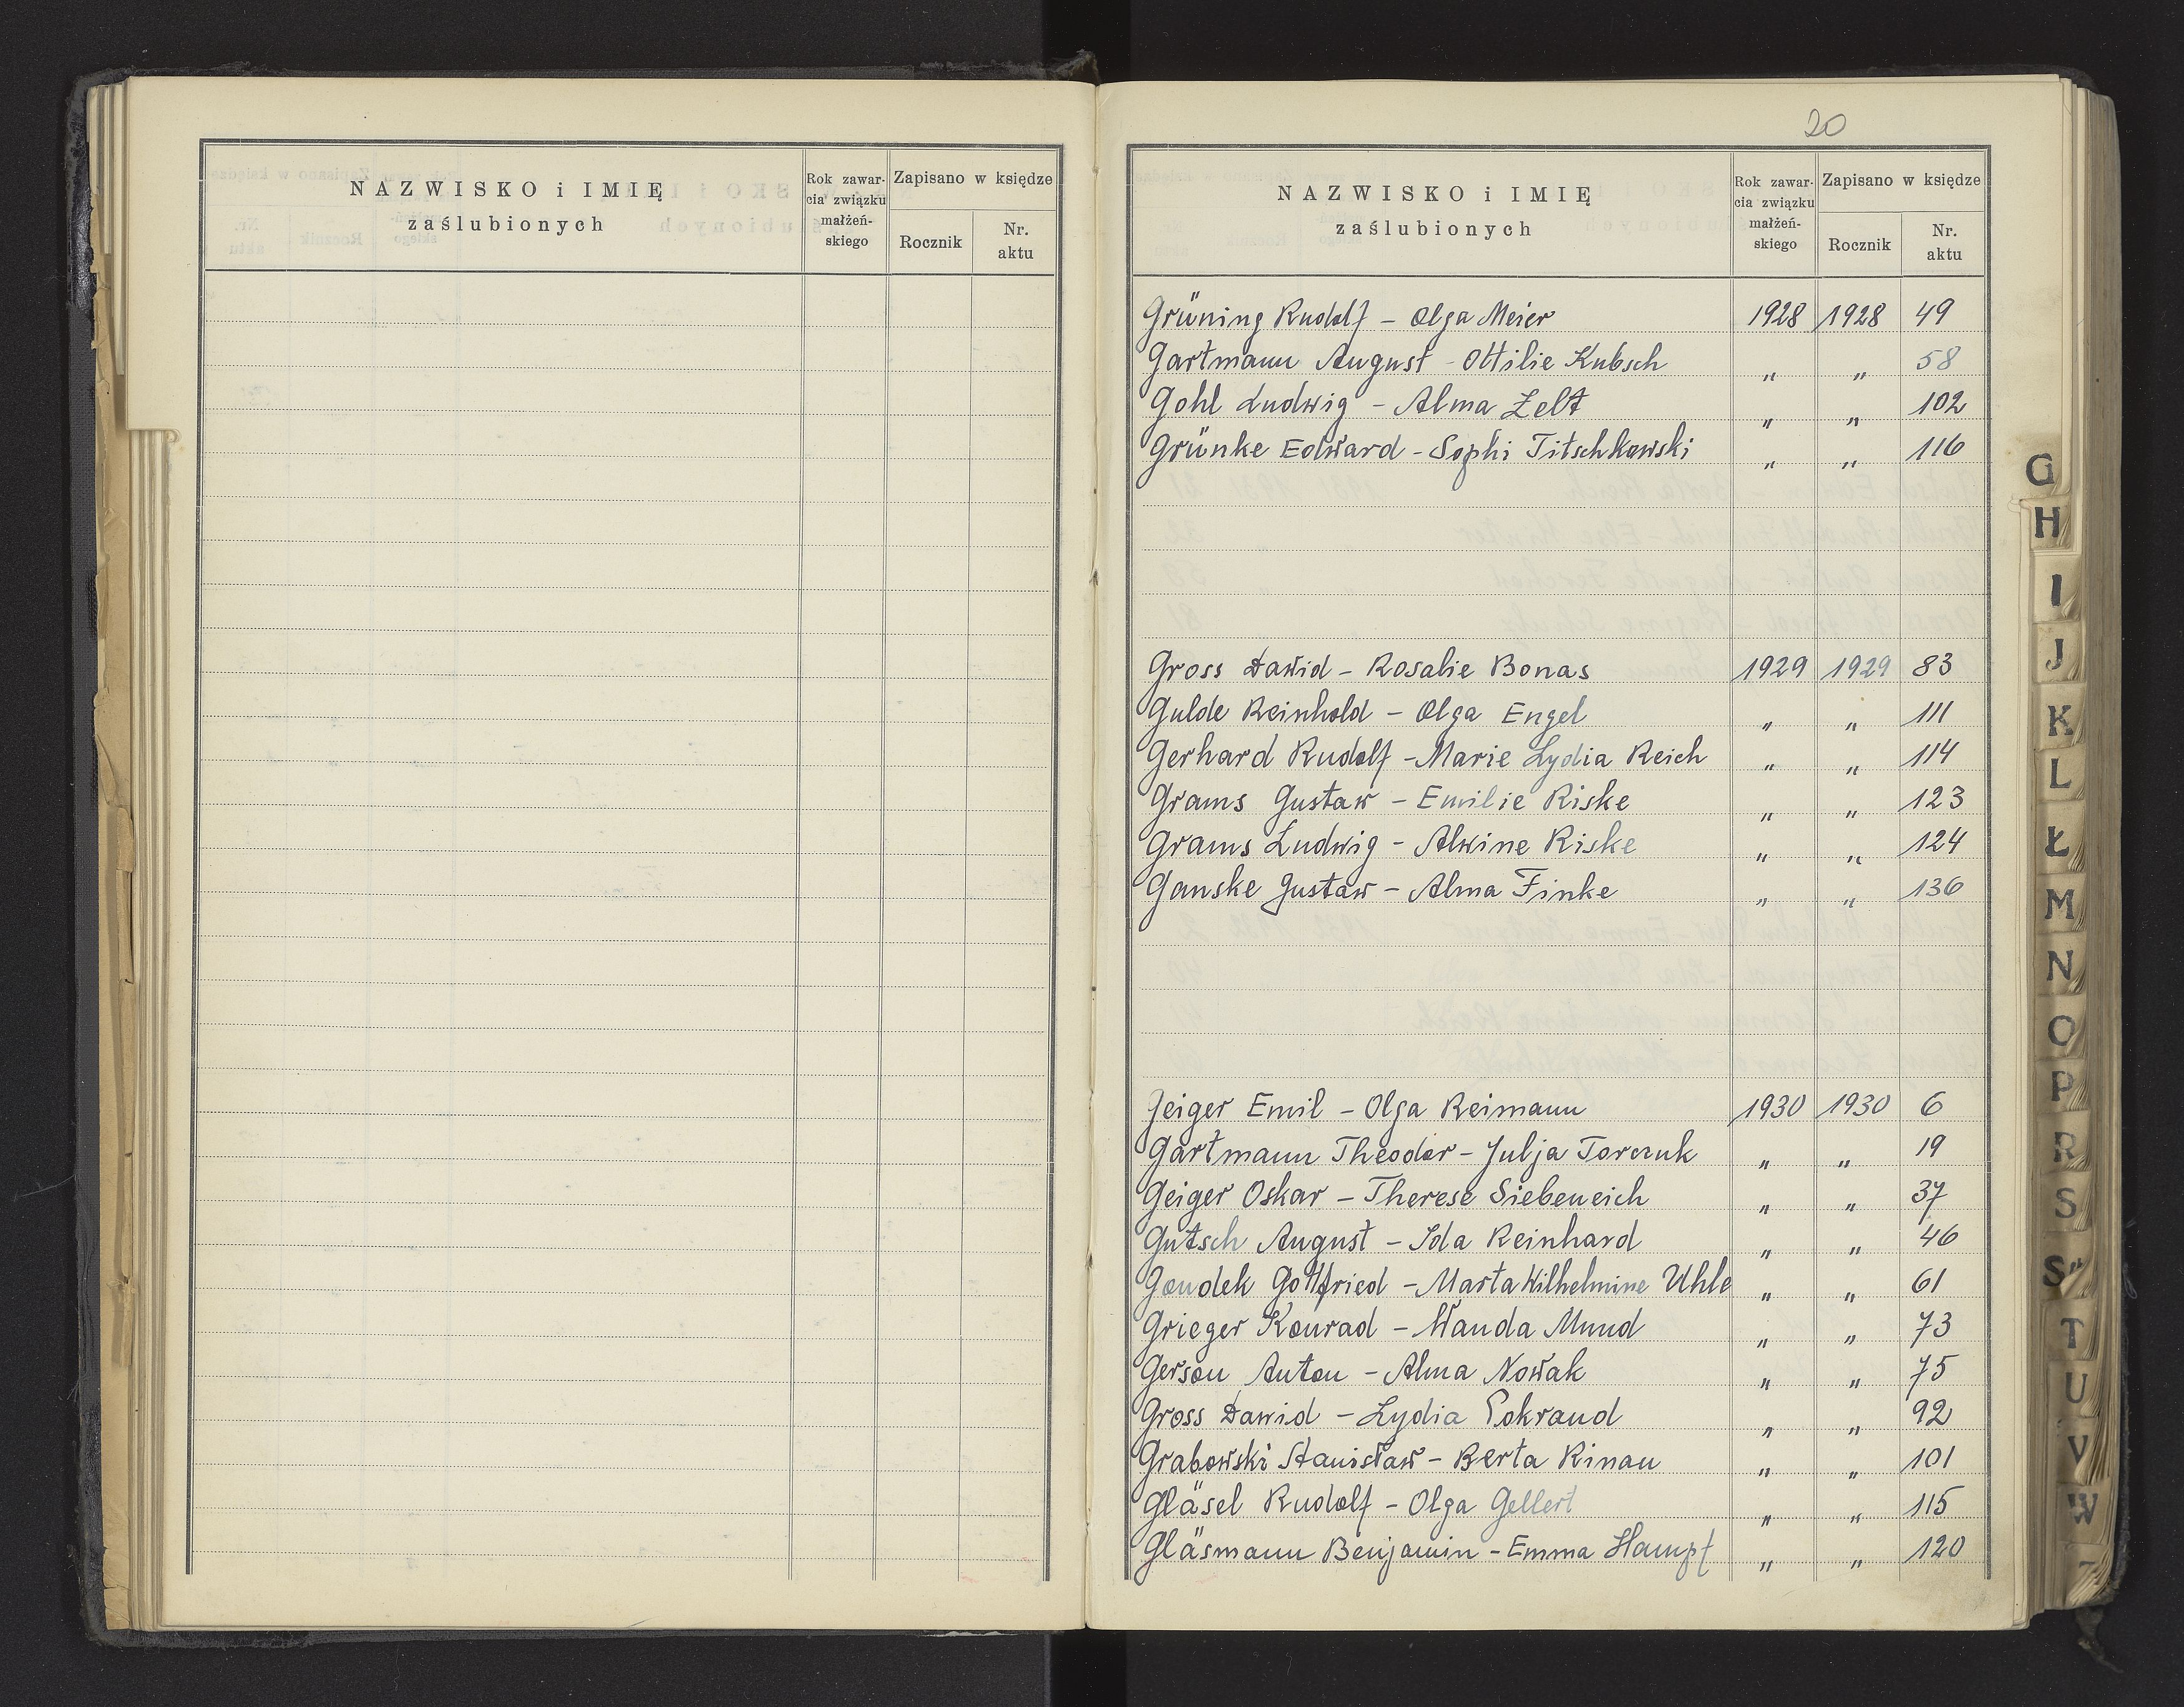 NAZWISKO i IMIĘ
zaślubionych
Rok zawar-
cia związku
małżeń-
skiego
Zapisano w księdze
Rocznik
Nr.
aktu
20
NAZWISKO i IMIĘ
zaślubionych
Rok zawar-
cia związku
małżeń-
skiego
Zapisano w księdze
Rocznik
Nr.
aktu
Grüning Rudolf - Olga Meier 1928 1928 49
Gartmann August - Ottilie Kubsch " " 58
Gohl Ludwig - Alma Zelt " " 102
Grünke Edward - Sophi Titschkowski " " 116
Gross Dawid - Rosalie Bonas 1929 1929 83
Gulde Reinhold - Olga Engel " " 111
Gerhard Rudolf - Marie Lydia Reich " " 114
Grams Gustaw - Emilie Riske " " 123
Grams Ludwig - Alwine Riske " " 124
Ganske Gustaw - Alma Finke " " 136
Geiger Emil - Olga Reimann 1930 1930 6
Gartmann Theodor - Julja Torczuk " " 19
Geiger Oskar - Therese Siebeneich " " 37
Gutsch August - Ida Reinhard " " 46
Goudek Gottfried - Marta Wilhelmine Uhle " " 61
Grieger Konrad - Wanda Mund " " 73
Gerson Anton - Alma Nowak " " 75
Gross Dawid - Lydia Pokrand " " 92
Grabowski Stanisław - Berta Rinau " " 101
Gläsel Rudolf - Olga Gellert " " 115
Gläsmann Benjamin - Emma Hampf " " 120
G
H
I
J
K
L
Ł
M
N
O
P
R
S
Ś
T
U
V
W
Z